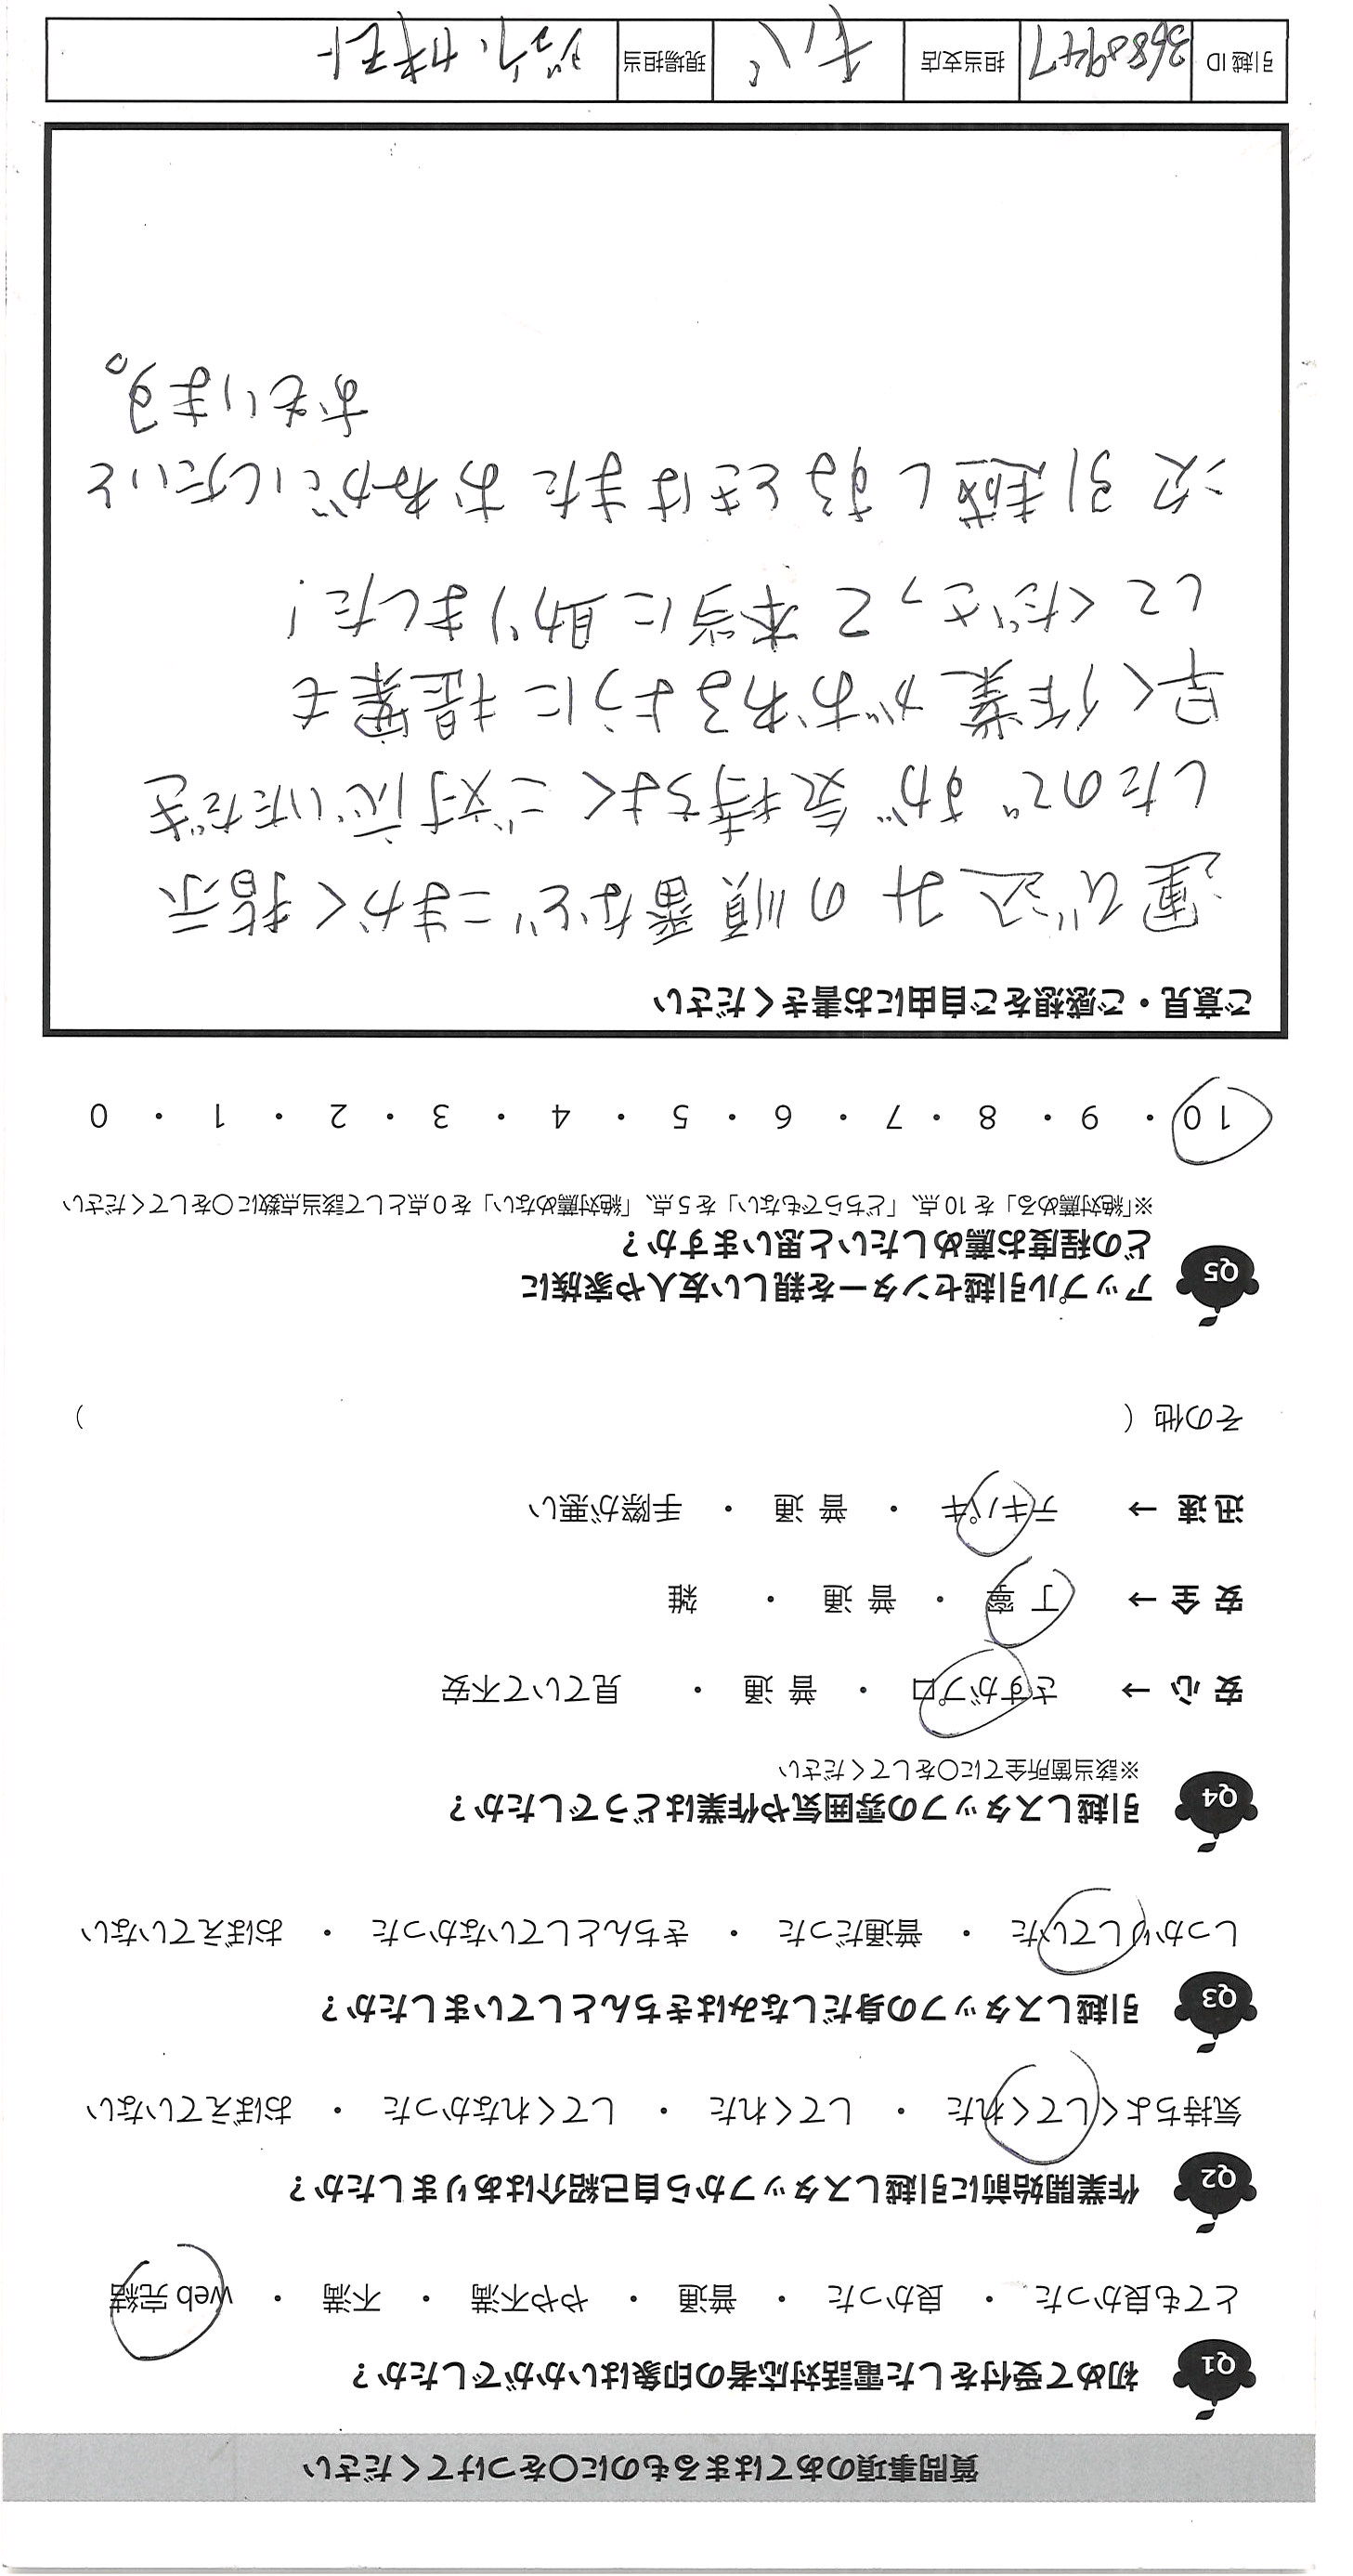 質問事項のあてはまるものに○をつけてください
Q1 初めて受付をした電話対応者の印象はいかがでしたか？
とても良かった ・ 良かった ・ 普通 ・ やや不満 ・ 不満 ・ web 完結
Q2 作業開始前に引越しスタッフから自己紹介はありましたか？
気持ちよくしてくれた ・ してくれた ・ してくれなかった ・ おぼえていない
Q3 引越しスタッフの身だしなみはきちんとしていましたか？
しっかりしていた ・ 普通だった ・ きちんとしていなかった ・ おぼえていない
Q4 引越しスタッフの雰囲気や作業はどうでしたか？
※該当箇所全てに○をしてください
安心 → さすがプロ ・ 普通 ・ 見ていて不安
安全 → 丁寧 ・ 普通 ・ 雑
迅速 → テキパキ ・ 普通 ・ 手際が悪い
その他（ ）
Q5 アップル引越センターを親しい友人や家族に
どの程度お薦めしたいと思いますか？
※「絶対薦める」を 10 点、「どちらでもない」を 5 点、「絶対薦めない」を 0 点として該当点数に○をしてください
10 ・ 9 ・ 8 ・ 7 ・ 6 ・ 5 ・ 4 ・ 3 ・ 2 ・ 1 ・ 0
ご意見・ご感想をご自由にお書きください
運び込みの順番などこまかく指示
したのですが気持ちよくご対応いただき
早く作業がおわるように提案も
してくださって本当に助りました!
次引越しするときはまたおねがいしたいと
おもいます。
引越 ID 3688947 担当支店 チバ 現場担当